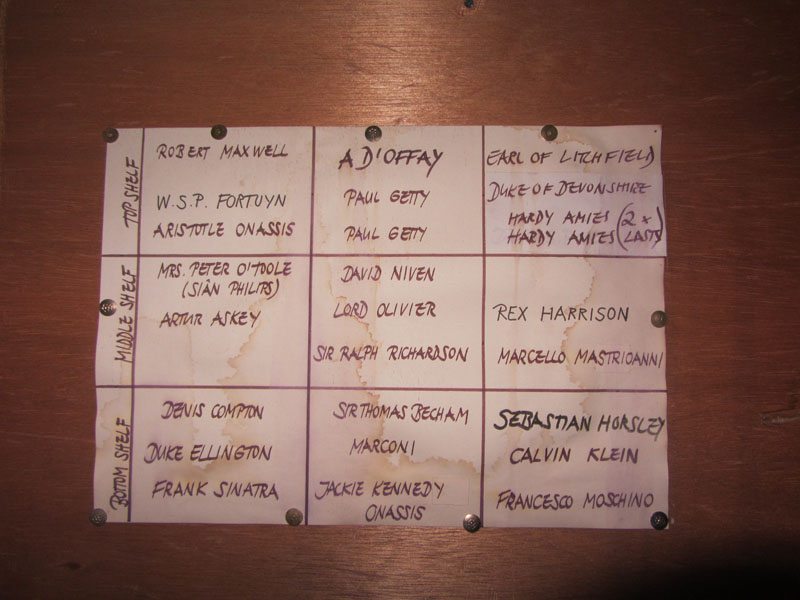 TOP SHELF
ROBERT MAXWELL
W.S.P. FORTUYN
ARISTOTLE ONASSIS
A D'OFFAY
PAUL GETTY
PAUL GETTY
EARL OF LITCHFIELD
DUKE OF DEVONSHIRE
HARDY AMIES (2 x
HARDY AMIES LASTS)
MIDDLE SHELF
MRS. PETER O'TOOLE
(SIÂN PHILIPS)
ARTUR ASKEY
DAVID NIVEN
LORD OLIVIER
SIR RALPH RICHARDSON
REX HARRISON
MARCELLO MASTRIOANNI
BOTTOM SHELF
DENIS COMPTON
DUKE ELLINGTON
FRANK SINATRA
SIR THOMAS BECHAM
MARCONI
JACKIE KENNEDY
ONASSIS
SEBASTIAN HORSLEY
CALVIN KLEIN
FRANCESCO MOSCHINO